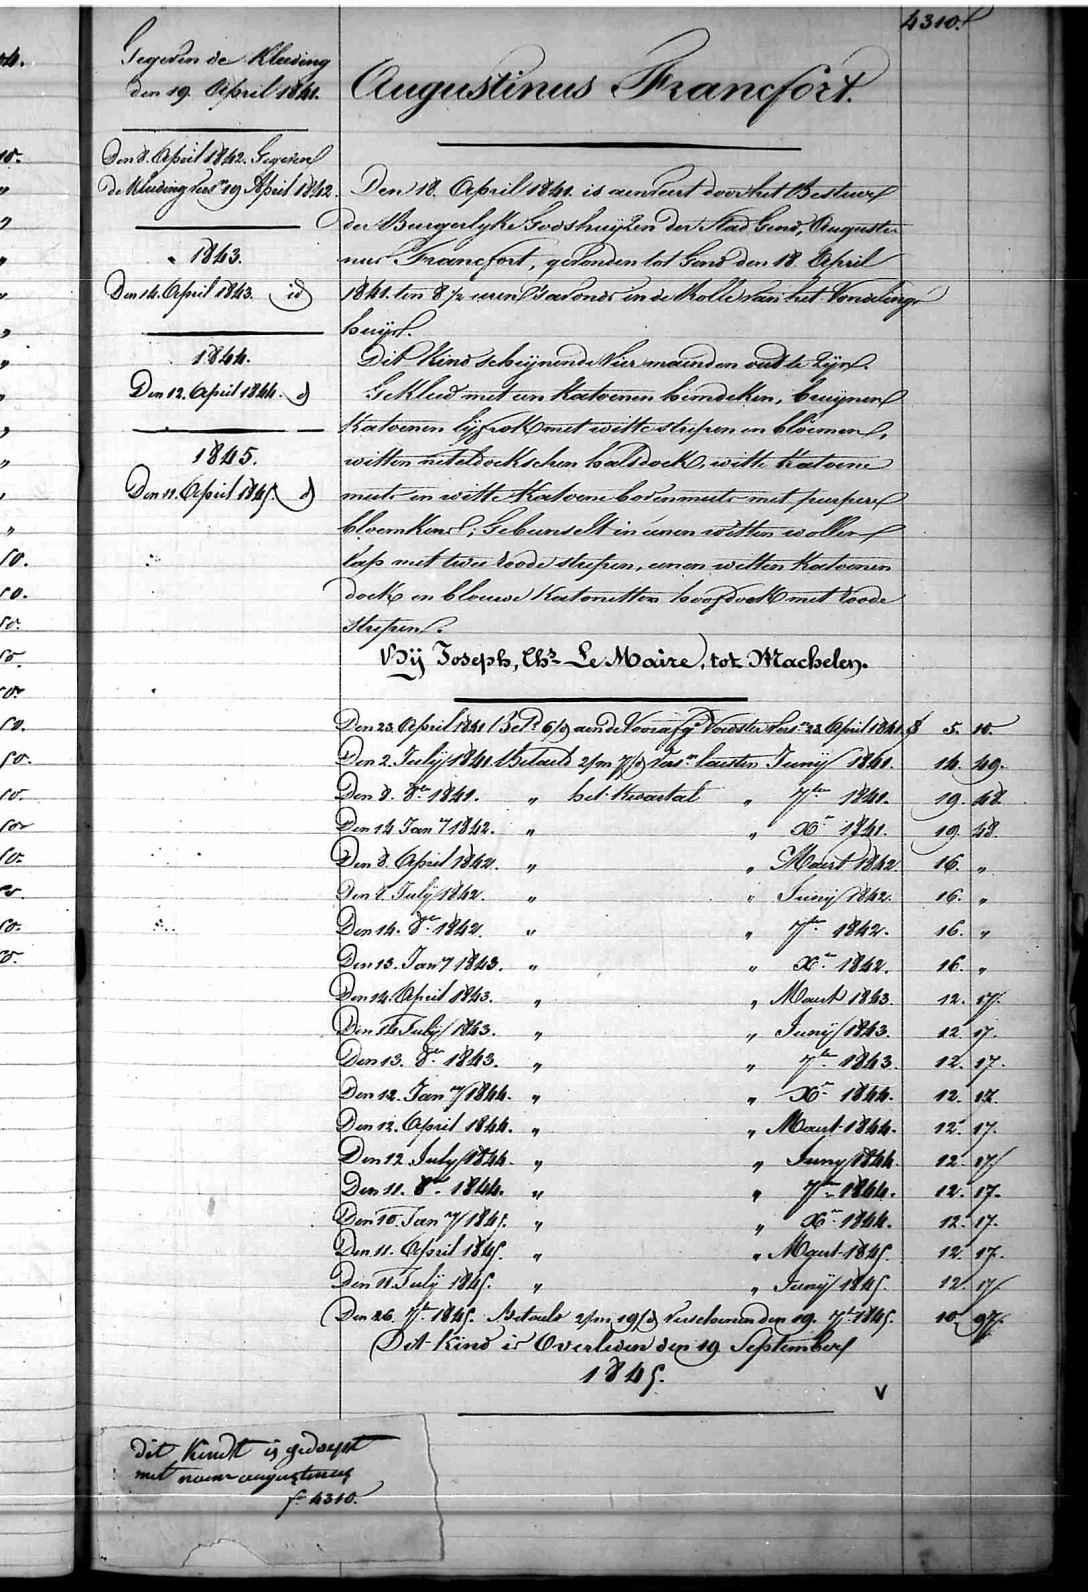 4310.
Gegeven de Kleeding
den 19. April 1841.
Den 8. April 1842. Gegeven
de Kleeding vers.n 19 April 1842.
" 1843.
Den 14. April 1843. id
1844.
Den 12. April 1844. d
1845.
Den 11. April 1845. d
Augustinus Francfort.
Den 18. April 1841. is aenveert door het Bestuer
der Burgerlyke Godshuyzen der Stad Gend, Augusti-
nus Francfort, gevonden tot Gend den 18. April
1841. ten 8 1/2 uren s'avonds in de Rolle van het Vondeling-
huys.
Dit Kind schijnende vier maenden oud te zijn.
Gekleed met een Katoenen hemdeken, bruynen
Katoenen lyfrok met witte strepen en bloemen,
witten neteldoekschen halsdoek, witte Katoene
muts en witte Katoene bovenmuts met purpere
bloemkens; Gebunselt in eenen witten wollen
lap met twee roode strepen, eenen witten Katoenen
doek en blauwe Katonetten hoofdoek met roode
strepen.
Bij Joseph, Ch.s Le Maire, tot Machelen.
Den 23. April 1841 6/d aen de Voedster vers.n 23 April 1841. 5. 10.
Den 2. July 1841. Betaeld 2/m 7/d vers.n laesten Juny 1841. 14. 49.
Den 8. 8.er 1841. " het Kwartal " 7.ber 1841. 19. 48.
Den 14 Jan.y 1842. " " X.r 1841. 19. 48.
Den 8. April 1842. " " Maert 1842. 16. "
Den 8. July 1842. " " Juny 1842. 16. "
Den 14. 8.er 1842. " " 7.ber 1842. 16. "
Den 13. Jan.y 1843. " " X.r 1842. 16. "
Den 14. April 1843. " " Maert 1843. 12. 17.
Den 14 July 1843. " " Juny 1843. 12. 17.
Den 13. 8.er 1843. " " 7.ber 1843. 12. 17.
Den 12. Jan.y 1844. " " X.r 1844. 12. 17.
Den 12. April 1844. " " Maert 1844. 12. 17.
Den 12 July 1844. " " Juny 1844. 12. 17.
Den 11. 8.er 1844. " " 7.er 1844. 12. 17.
Den 10. Jan.y 1845. " " X.r 1844. 12. 17.
Den 11. April 1845. " " Maert 1845. 12. 17.
Den 11. July 1845. " " Juny 1845. 12. 17.
Den 26. 7.er 1845. Betaeld 2/m 19/d verschenen den 19. 7.er 1845. 10. 97.
Dit Kind is Overleden den 19 September
1845.
V
dit kindt is gedoopt
met naem augustinus
f.o 4310.